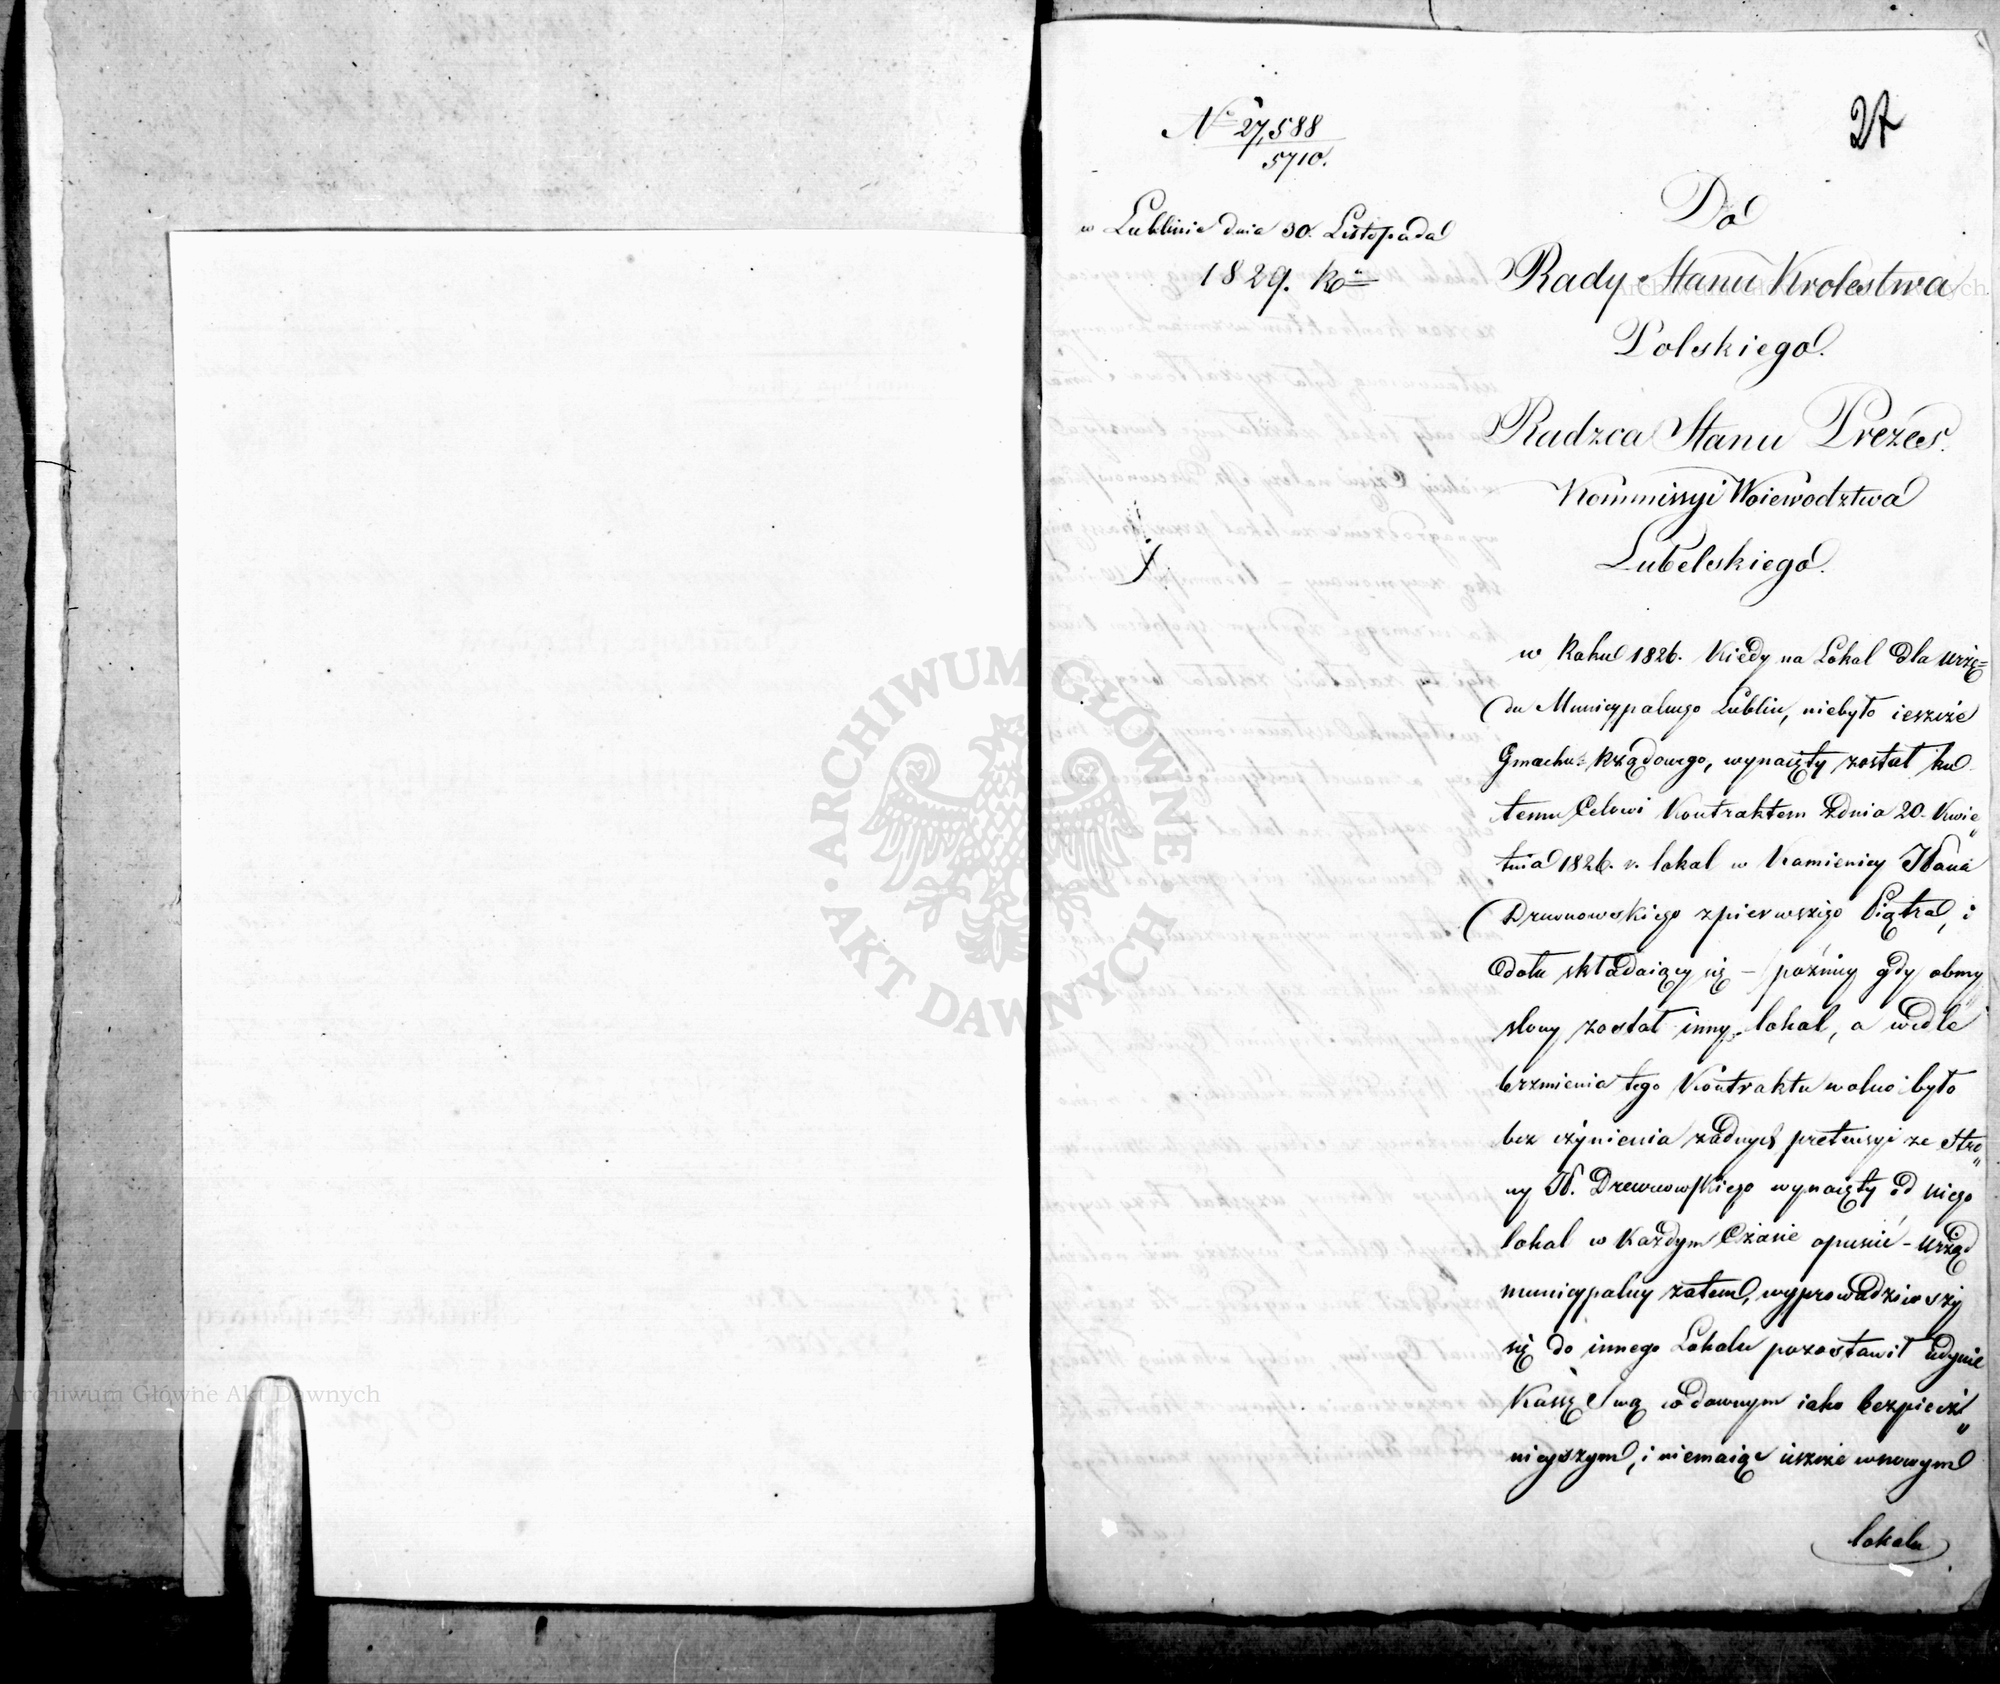 27
No 27,588
5710.
w Lublinie dnia 30. Listopada
1829. Ro
Do
Rady Stanu Krolestwa
Polskiego.
Radzca Stanu Prezes
Kommissyi Woiewodztwa
Lubelskiego.
w Roku 1826. Kiedy na Lokal dla Urzę=
du Municypalnego Lublin, niebyło ieszcze
Gmachu Rządowego, wynaięty został ku
temu Celowi Kontraktem zdnia 20. Kwie„
tnia 1826. r. lokal w Kamienicy JPana
Drewnowskiego zpierwszego Piątra, i
dołu składaiący się – późniey gdy obmy„
slony został inny lokal, a wedle
brzmienia tego Kontraktu wolno było
bez czynienia żadnych pretensyi ze Stro„
ny JP. Drewnowskiego wynaięty od niego
lokal w Każdym Czasie opuscić – Urząd
municypalny zatem, wyprowadziwszy
się do innego Lokalu pozostawił iedynie
Kassę Swą w dawnym iako bezpiecz„
nieyszym, i niemaiąc ieszcze wnowym
lokalu
ARCHIWUM GŁÓWNE · AKT DAWNYCH
Archiwum Główne Akt Dawnych